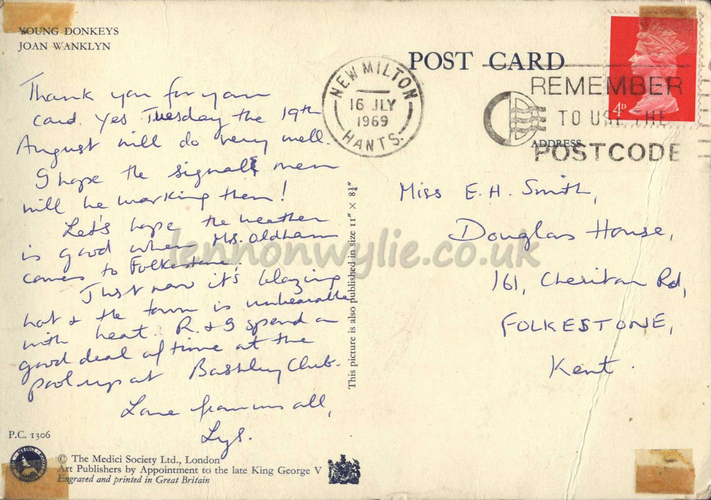 YOUNG DONKEYS
JOAN WANKLYN
Thank you for your
card. Yes Tuesday the 19th
August will do very well.
I hope the signal men
will be working then!
Let's hope the weather
is good when Mrs. Oldham
comes to Folkestone
Just now it's blazing
hot & the town is unbearable
with heat. R. & I spend a
good deal of time at the
pool up at Bashley Club.
Love from us all,
Lys.
P.C. 1306
© The Medici Society Ltd., London
Art Publishers by Appointment to the late King George V
Engraved and printed in Great Britain
This picture is also published in size 11" × 8¾"
POST CARD
NEW MILTON
16 JLY
1969
HANTS.
REMEMBER
TO USE THE
POSTCODE
4D
ADDRESS
Miss E. H. Smith,
Douglas House,
161, Cheriton Rd,
FOLKESTONE,
Kent.
lennonwylie.co.uk